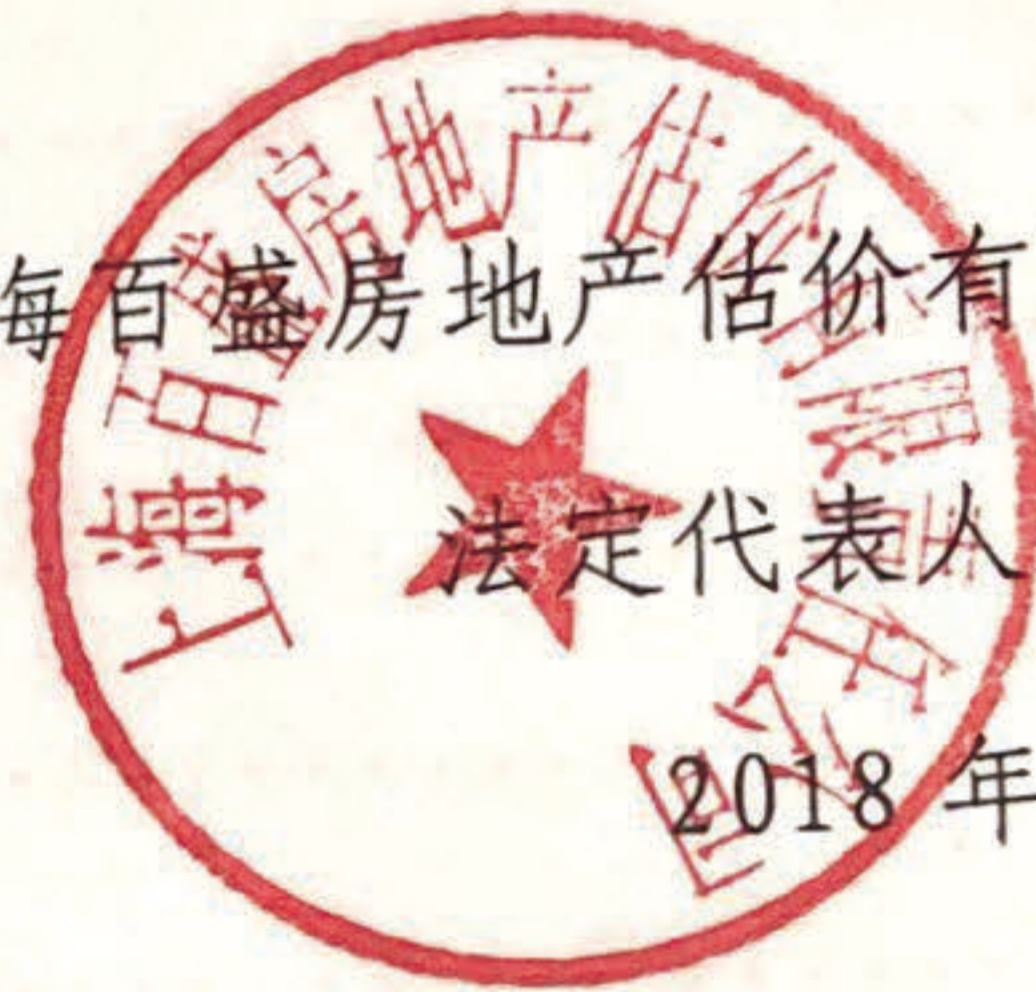 上海百盛房地产估价有限责任公司
海百盛房地产估价有
法定代表人
2018 年